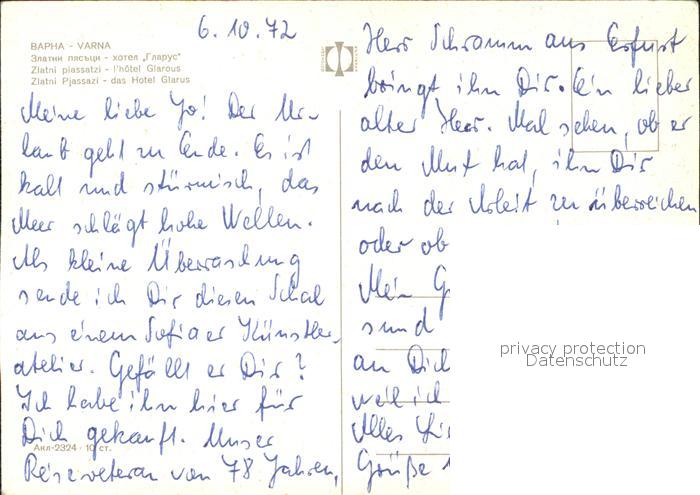 6. 10. 72
ВАРНА - VARNA
Златни пясъци - хотел „Гларус"
Zlatni piassatzi - l'hôtel Glarous
Zlatni Pjassazi - das Hotel Glarus
Meine liebe Jo! Der Ur-
laub geht zu Ende. Es ist
kalt und stürmisch, das
Meer schlägt hohe Wellen.
Als kleine Überraschung
sende ich Dir diesen Schal
aus einem Sofiaer Künstler-
atelier. Gefällt er Dir?
Ich habe ihn hier für
Dich gekauft. Unser
Reiseveteran von 78 Jahren,
Акл-2324 · 10 ст.
Herr Schramm aus Erfurt
bringt ihn Dir. Ein lieber
alter Herr. Mal sehen, ob er
den Mut hat, ihn Dir
nach der Arbeit zu überreichen
oder ob
Mein
sind
an Dich
weil ich
Alles
Grüße
privacy protection
Datenschutz